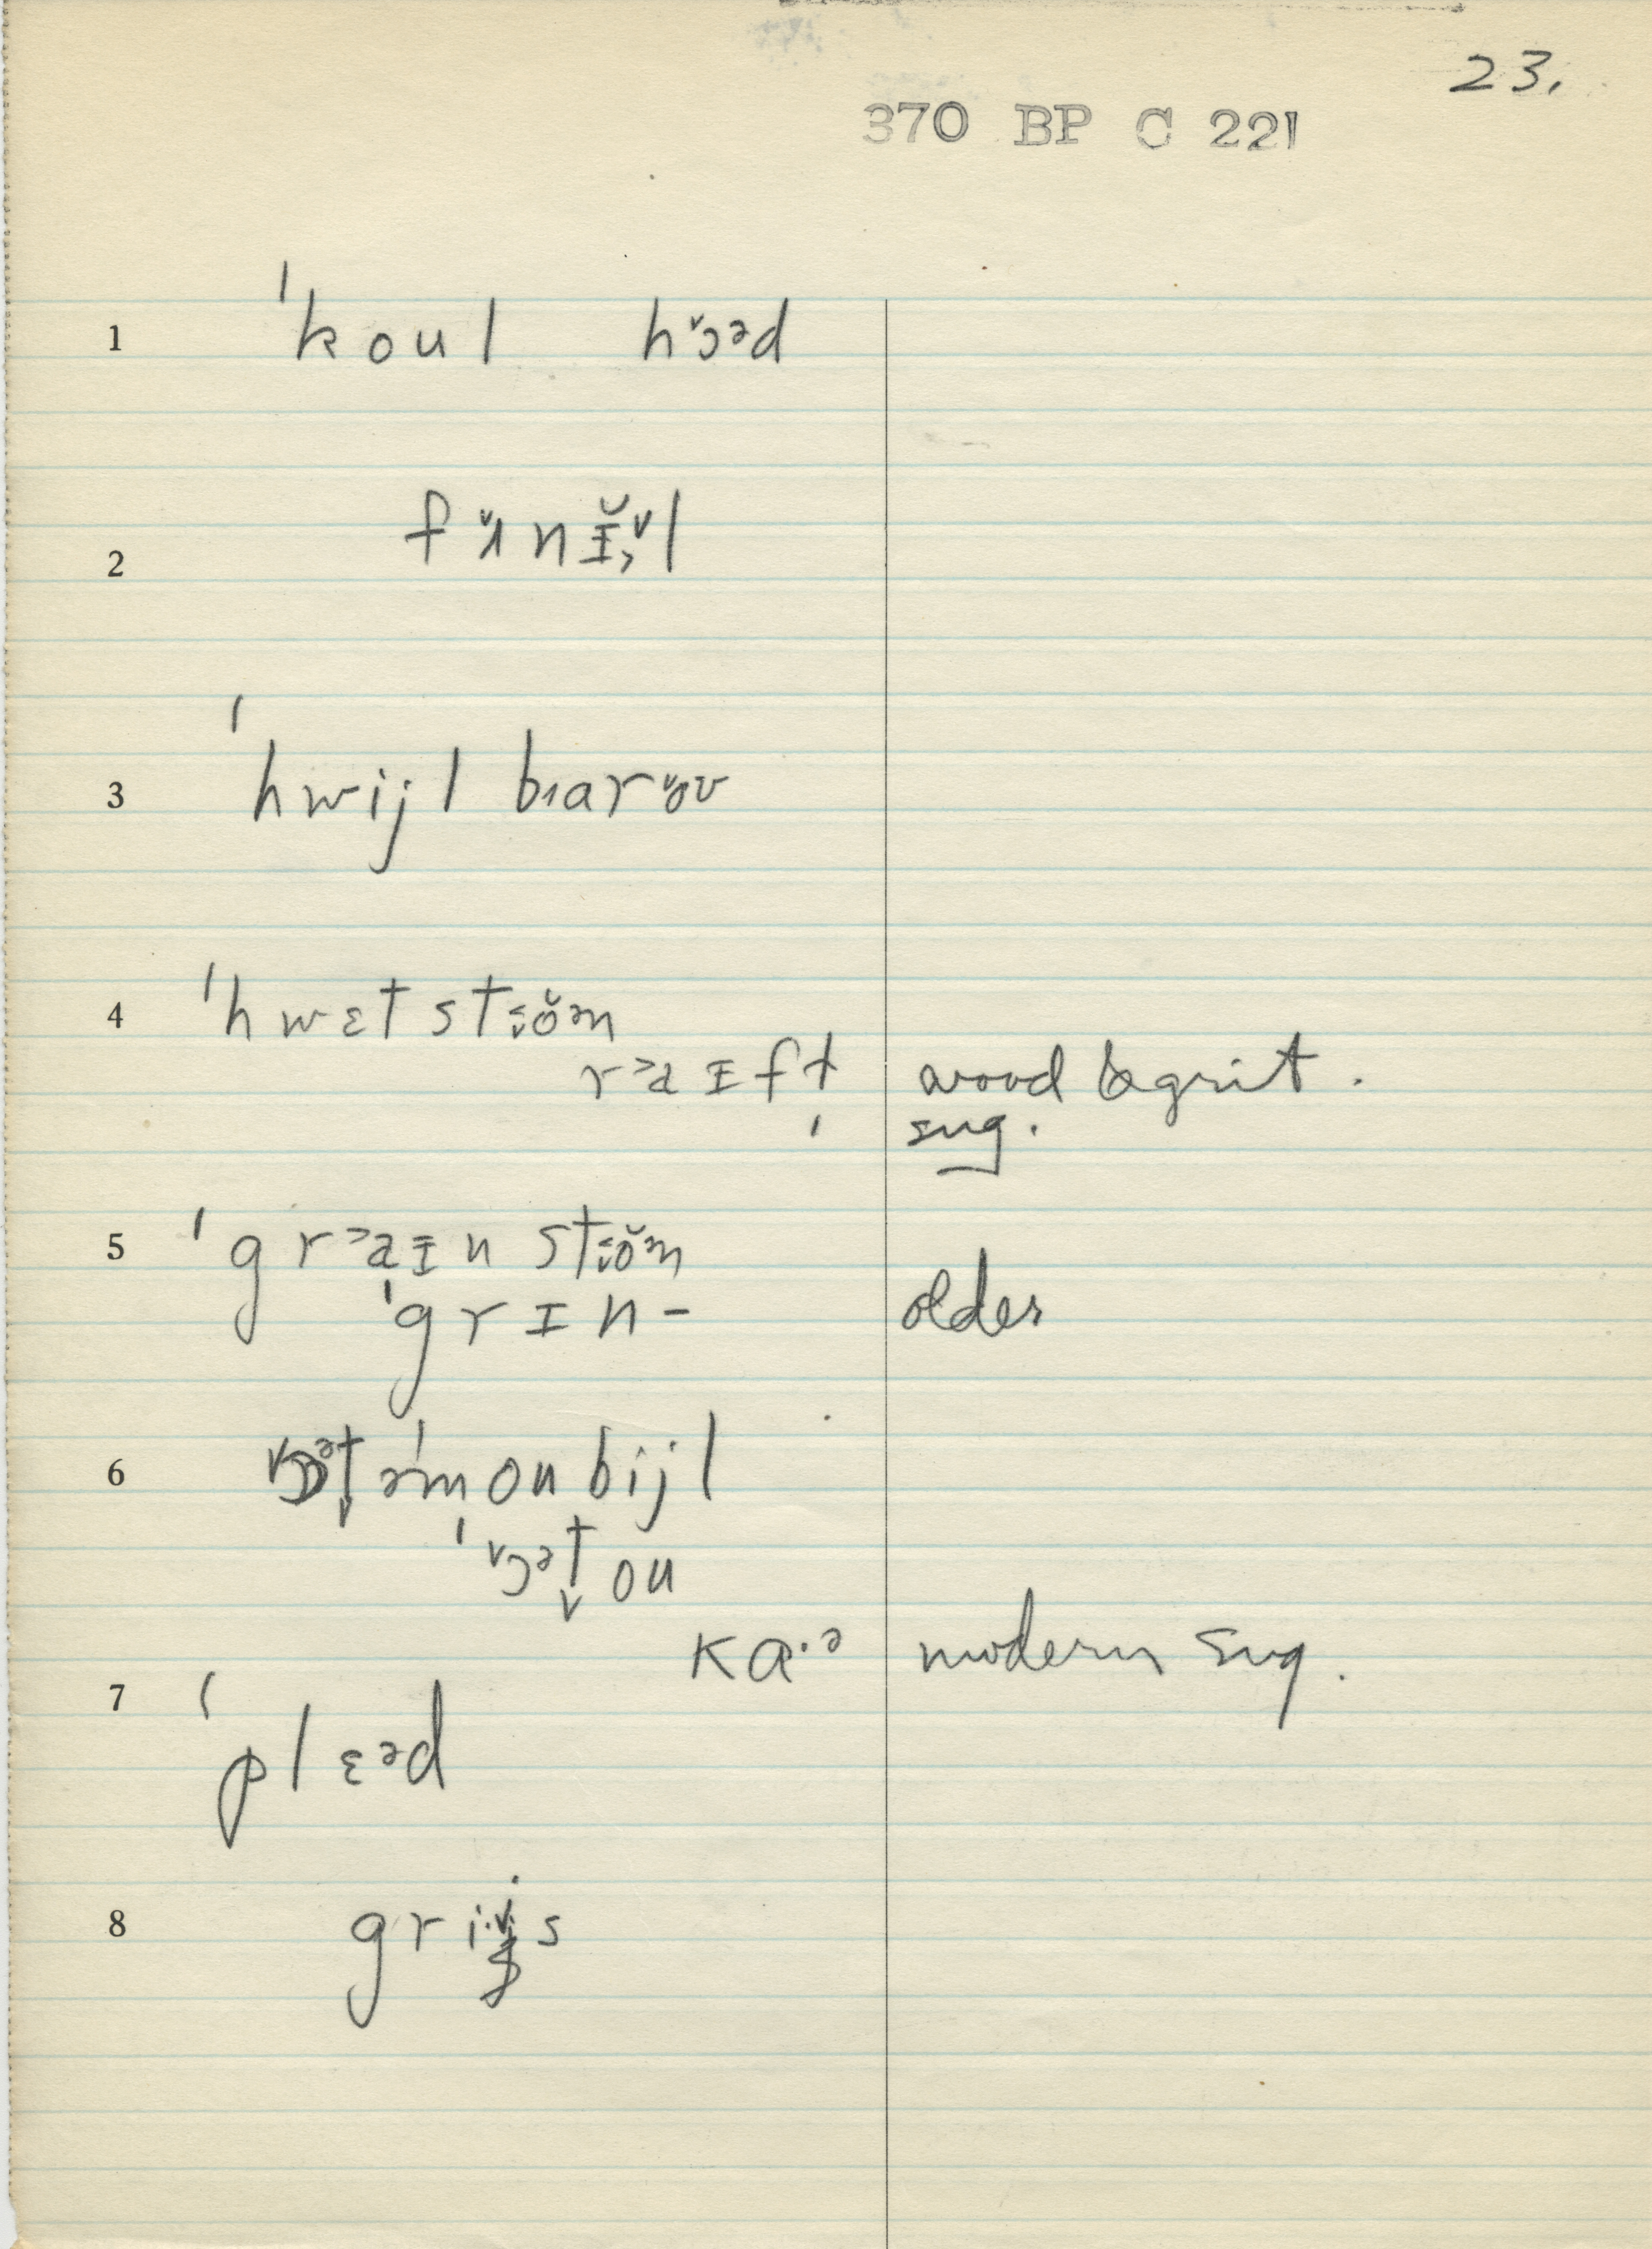 23.
370 BP C 221
1 ˈkoul hɔ̌ᵊd
2 fʌ̌nɪ̆l
3 ˈhwijl bɪarǒʊ
4 ˈhwɛt stɵ̌ᵊn
rᵊaɪft wood & grit.
sug.
5 ˈgrᵊaɪn stɵ̌ᵊn
ˈgrɪn- older
6 ɔᵊt̬əˈmoubijl
ˈɔ̌ᵊt̬ou
ka·ᵊ modern sug.
7 ˈplɛᵊd
8 gri·s